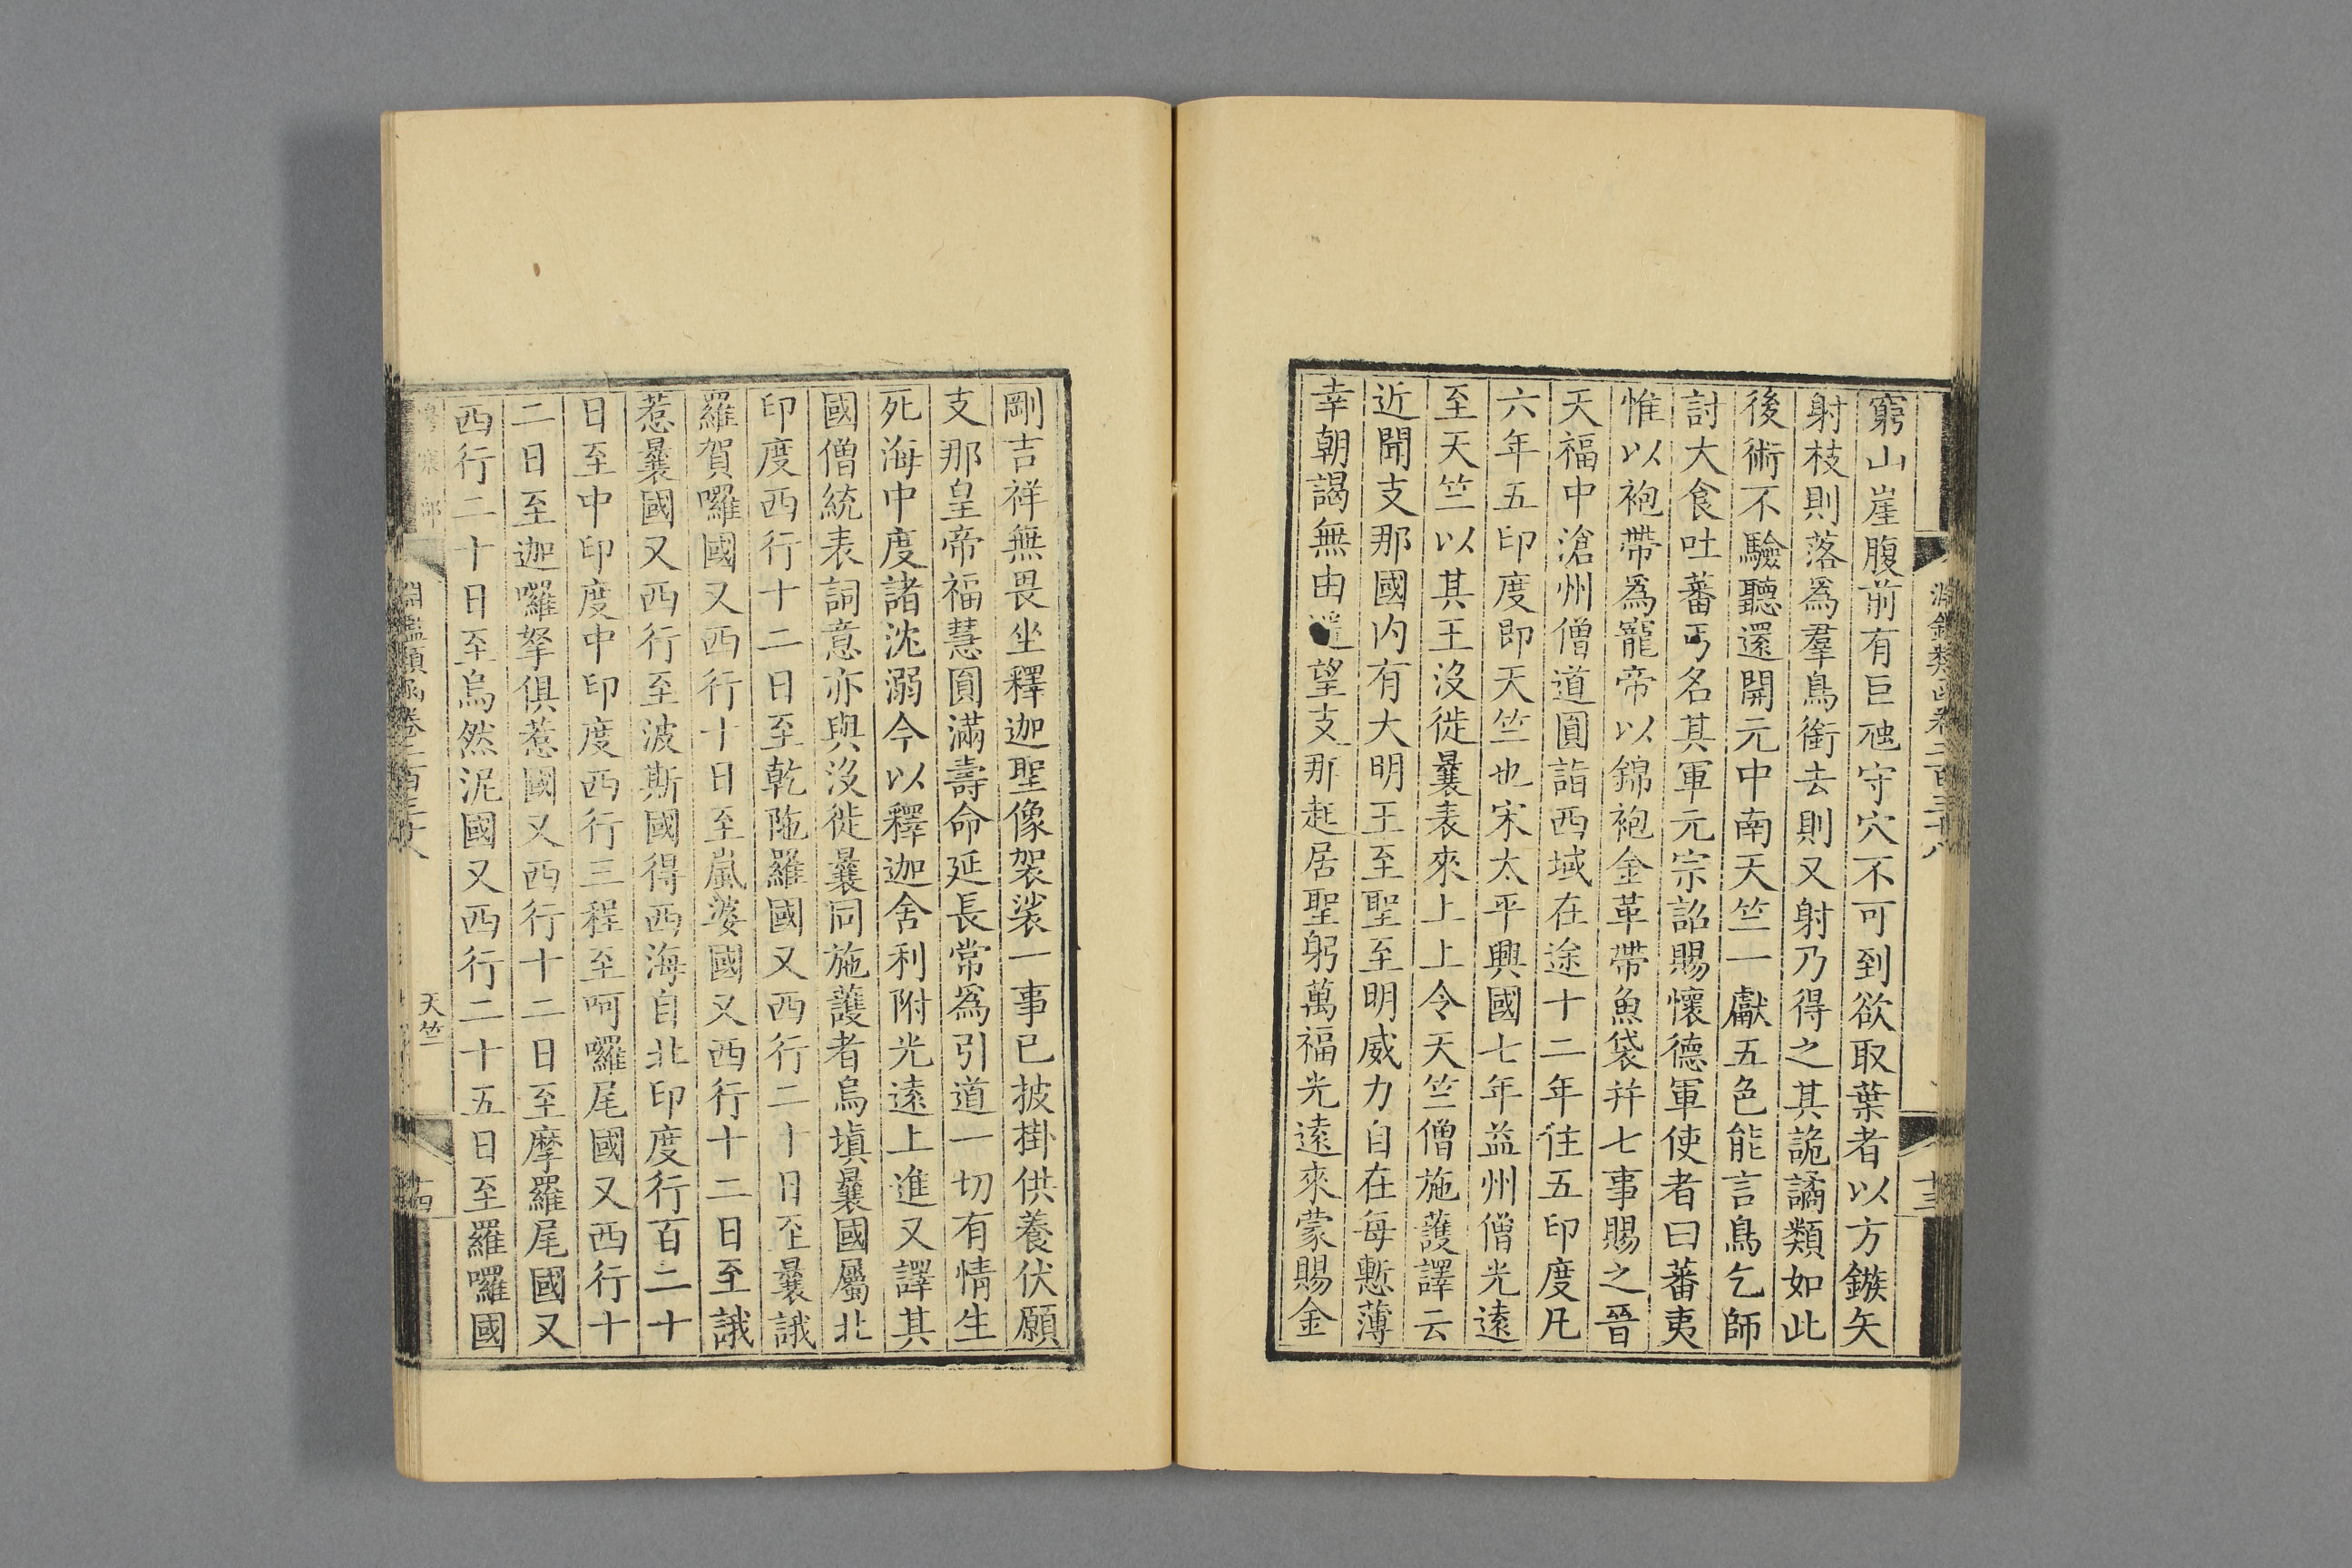 窮山崖腹前有巨虵守穴不可到欲取葉者以方鏃矢
射枝則落爲羣鳥銜去則又射乃得之其詭譎類如此
後術不驗聽還開元中南天竺一獻五色能言鳥乞師
討大食吐蕃丐名其軍元宗詔賜懷德軍使者曰蕃夷
惟以袍帶爲寵帝以錦袍金革帶魚袋并七事賜之晉
天福中滄州僧道圓詣西域在途十二年往五印度凡
六年五印度即天竺也宋太平興國七年益州僧光遠
至天竺以其王沒徙曩表來上上令天竺僧施護譯云
近聞支那國内有大明王至聖至明威力自在每慙薄
幸朝謁無由望支那起居聖躬萬福光遠來蒙賜金
剛吉祥無畏坐釋迦聖像袈裟一事已披掛供養伏願
支那皇帝福慧圓滿壽命延長常爲引道一切有情生
死海中度諸沈溺今以釋迦舍利附光遠上進又譯其
國僧統表詞意亦與沒徙曩同施護者烏塡曩國屬北
印度西行十二日至乾陁羅國又西行二十日至曩誐
羅賀囉國又西行十日至嵐婆國又西行十二日至誐
惹曩國又西行至波斯國得西海自北印度行百二十
日至中印度中印度西行三程至呵囉尾國又西行十
二日至迦囉拏俱惹國又西行十二日至摩羅尾國又
西行二十日至烏然泥國又西行二十五日至羅囉國
天竺